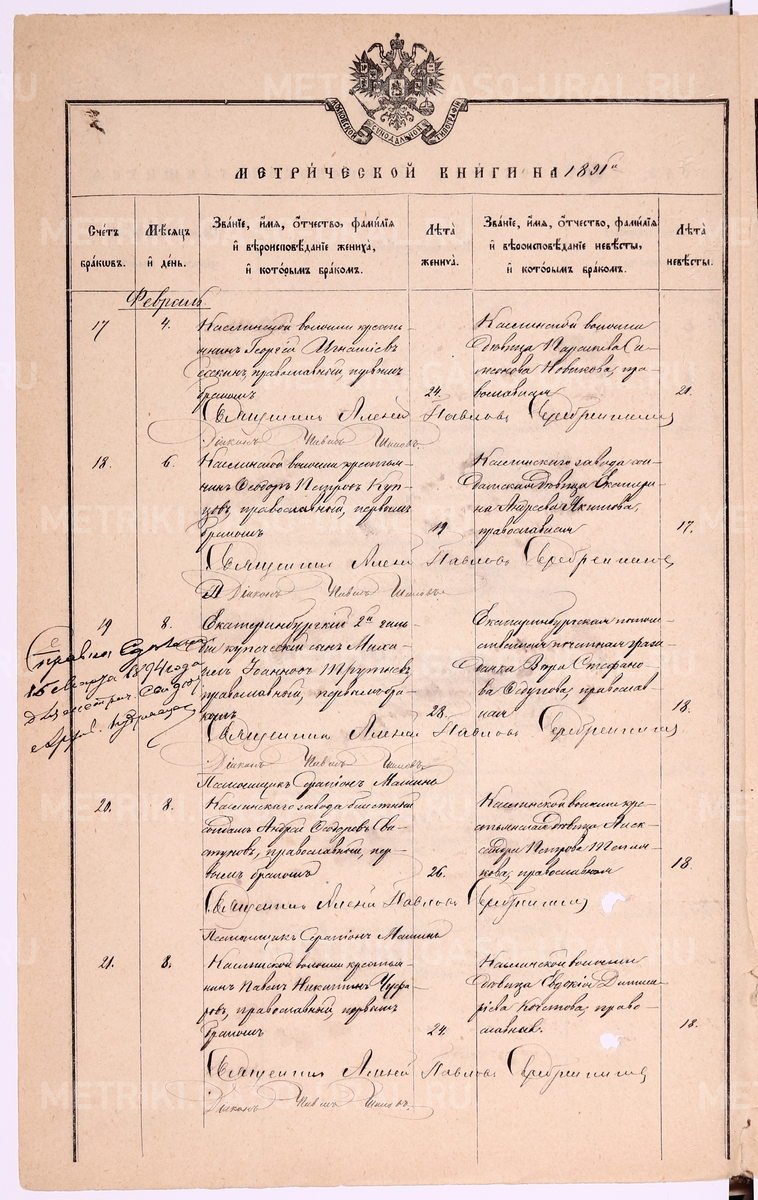 МОСКОВСКОЙ СѴНОДАЛЬНОЙ ТИПОГРАФІИ
МЕТРИ́ЧЕСКОЙ КНИ́ГИ НА 1891й
Сче́тъ бра́кωвъ.
Мѣ́сяцъ и҆ де́нь.
Зва́нїе, и҆́мя, ѻ҆́тчество, фами́лїя и҆ вѣроисповѣ́данїе жениха̀, и҆ кото́рымъ бра́комъ.
Лѣ́та жениха̀.
Зва́нїе, и҆́мя, ѻ҆́тчество, фами́лїя и҆ вѣроисповѣ́данїе невѣ́сты, и҆ кото́рымъ бра́комъ.
Лѣ́та невѣ́сты.
Февраль
17 4. Каслинской волости кресть-
янинъ Георгій Игнатіевъ
православный, первымъ
бракомъ 24.
Каслинской волости
дѣвица Параскева Си-
монова Новикова, пра-
вославная 21.
Священникъ Алексій Павловъ Серебренниковъ
Діаконъ Павелъ
18. 6. Каслинской волости крестья-
нинъ Ѳеодоръ Петровъ Куп-
цовъ, православный, первымъ
бракомъ 19
Каслинскаго завода сол-
датская дѣвица Екатери-
на Андреева Якимова,
православная 17.
Священникъ Алексій Павловъ Серебренниковъ
Діаконъ Павелъ
19 8. Екатеринбургскій 2й гиль-
діи купеческій сынъ Миха-
илъ Іоанновъ
православный, первымъ бра-
комъ 28.
Екатеринбургская потом-
ственная почетная граж-
данка Вѣра Стефано-
ва православ
ная 18.
1894 года
Священникъ Алексій Павловъ Серебренниковъ
Діаконъ Павелъ
Псаломщикъ Серапіонъ Машинъ
20. 8. Каслинскаго завода билетный
солдатъ Андрей Ѳеодоровъ
православный, пер-
вымъ бракомъ 26.
Каслинской волости кре-
стьянская дѣвица Алек-
сандра Петрова
православная 18.
Священникъ Алексій Павловъ Серебренниковъ
Псаломщикъ Серапіонъ Машинъ
21. 8. Каслинской волости крестья-
нинъ Павелъ Никитинъ
православный, первымъ
бракомъ 24.
Каслинской волости
дѣвица Евдокія Димит-
ріева право-
славная. 18.
Священникъ Алексій Павловъ Серебренниковъ
Діаконъ Павелъ